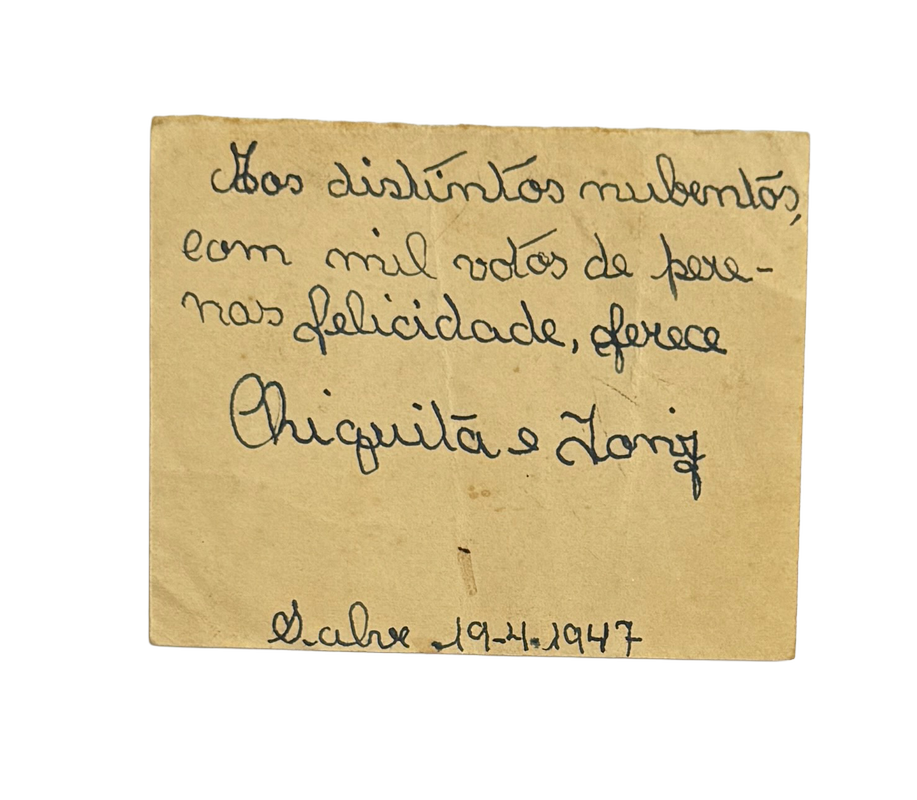 Aos distintos nubentos,
com mil votos de pere-
nas felicidade, oferece
Chiquita e Tony
Salve 19-4-1947